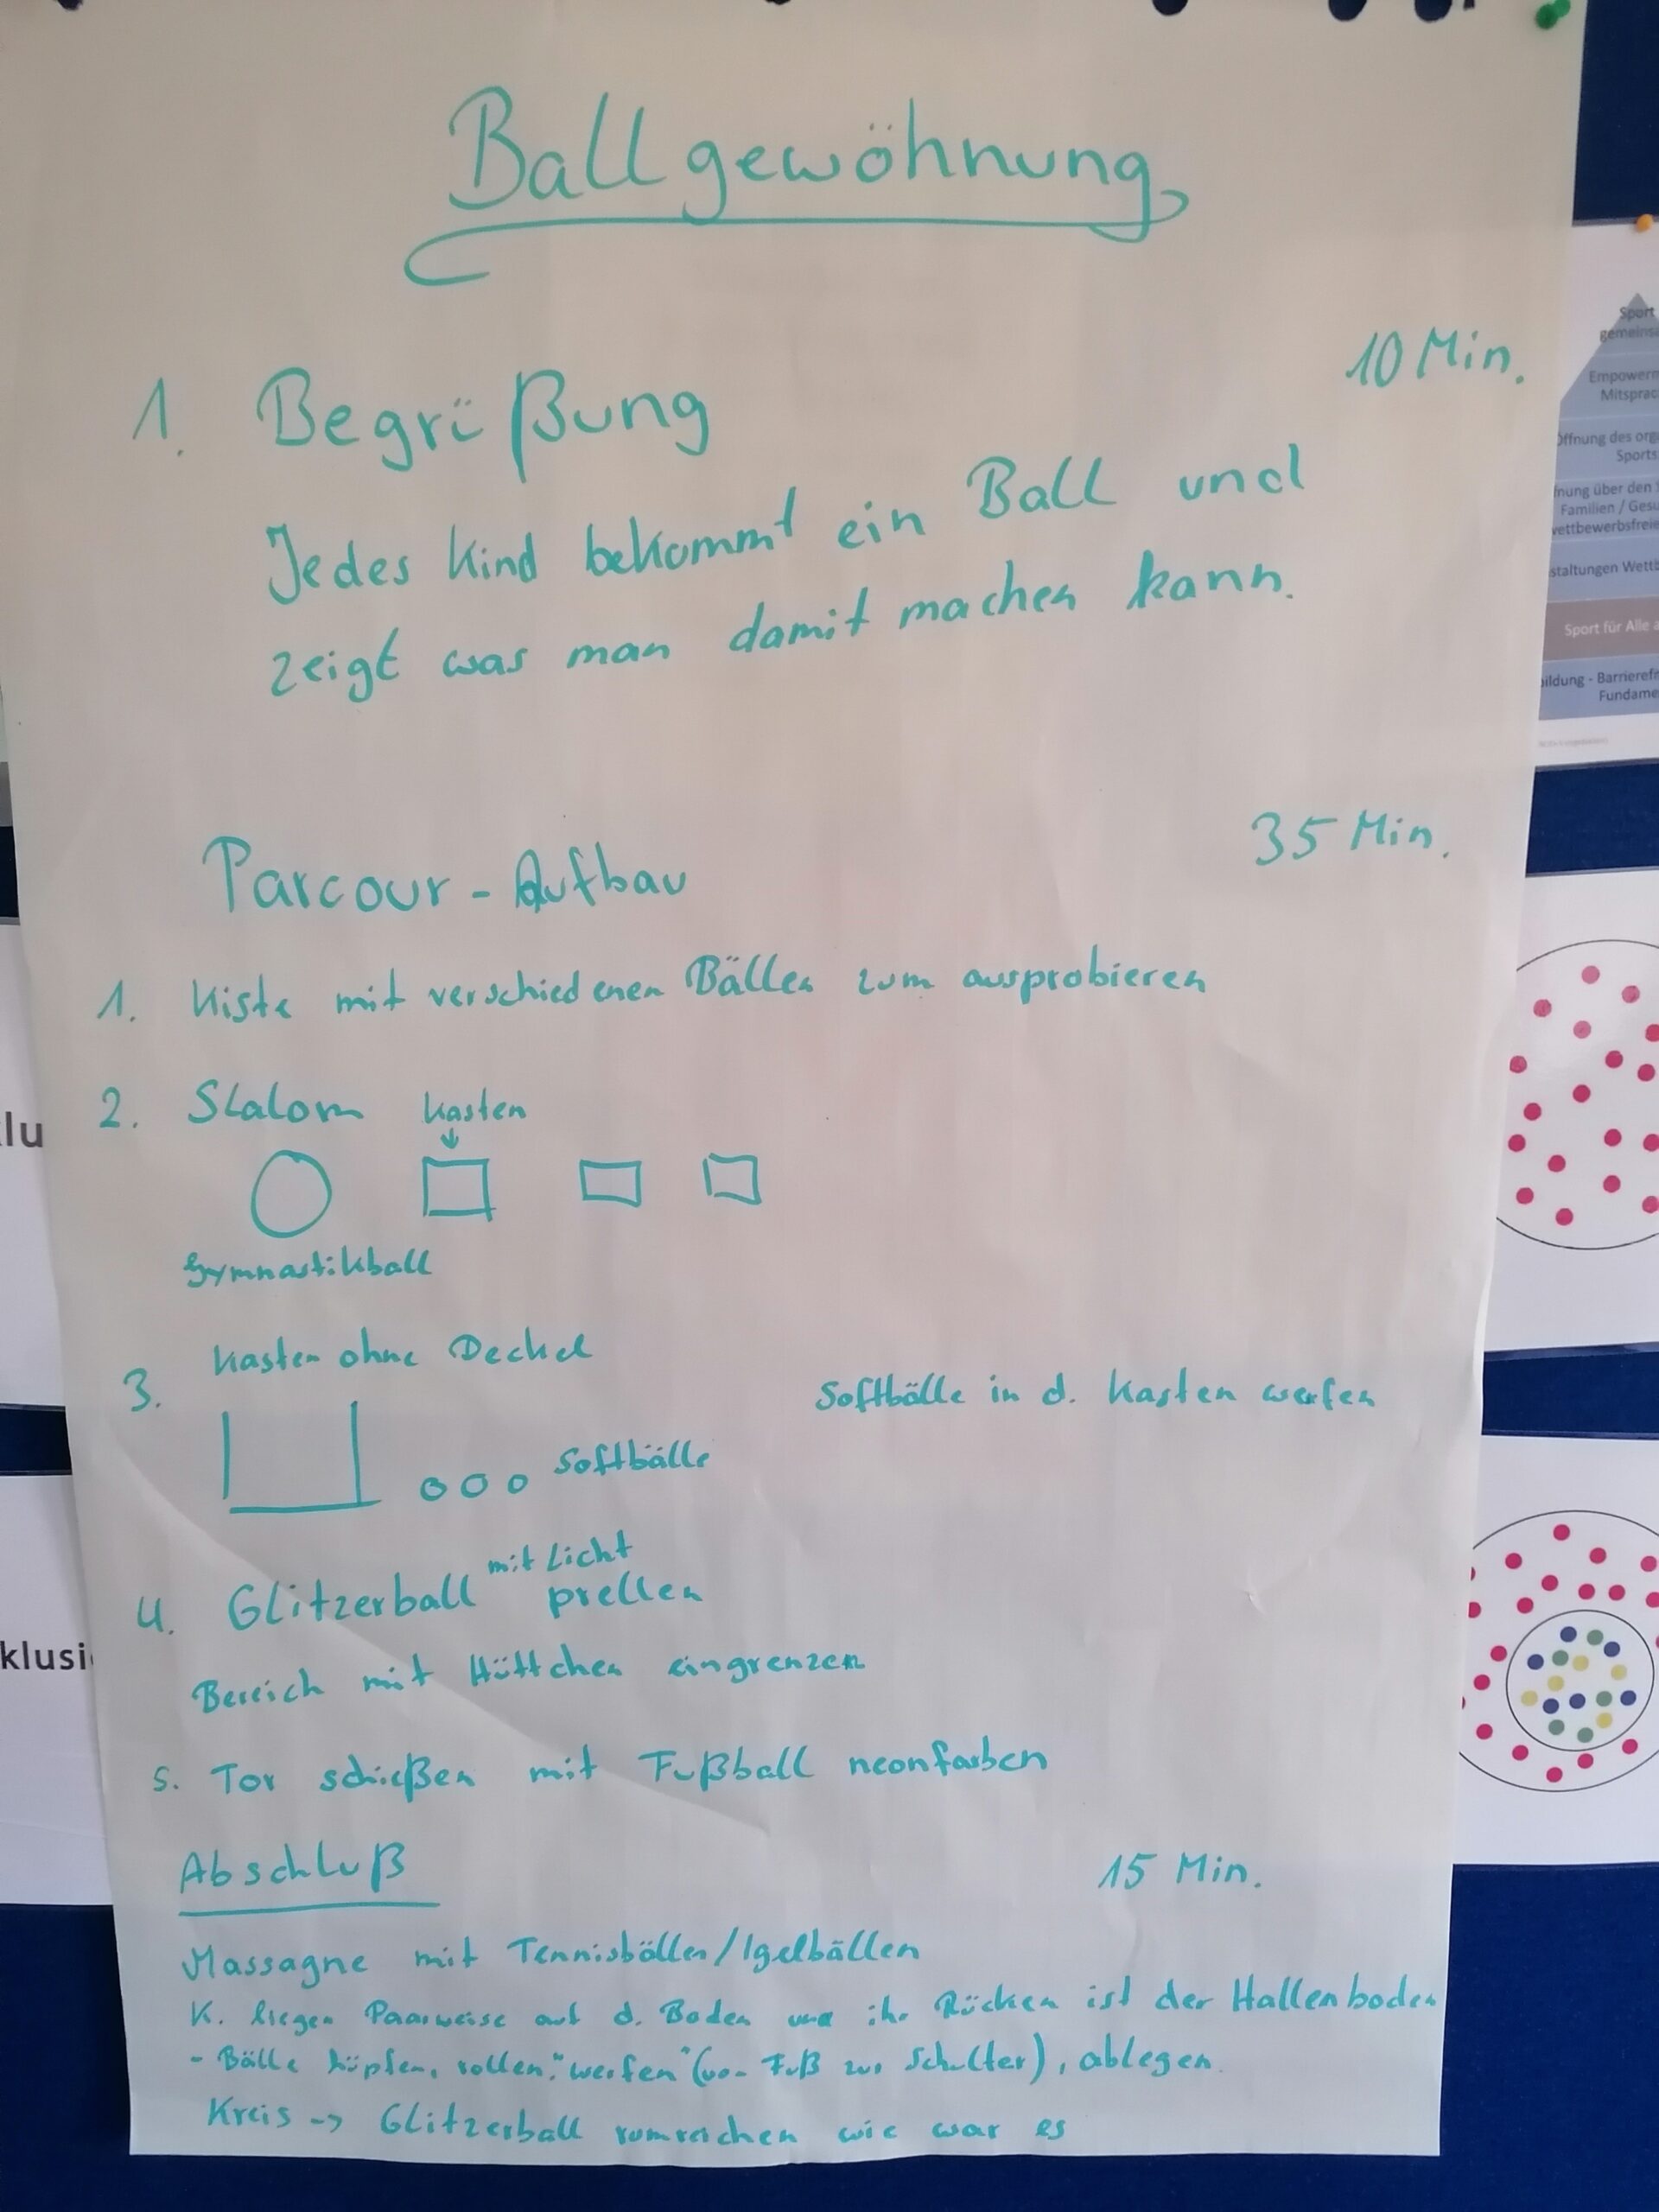 Ballgewöhnung
10 Min.
1. Begrüßung
Jedes Kind bekommt ein Ball und
zeigt was man damit machen kann.
35 Min.
Parcour - Aufbau
1. Kiste mit verschiedenen Bällen zum ausprobieren
2. Slalom Kasten
Gymnastikball
3. Kasten ohne Deckel
Softbälle in d. Kasten werfen
Softbälle
mit Licht
4. Glitzerball prellen
Bereich mit Hüttchen eingrenzen
5. Tor schießen mit Fußball neonfarben
Abschluß 15 Min.
Massagne mit Tennisbällen/Igelbällen
K. liegen Paarweise auf d. Boden und ihr Rücken ist der Hallenboden
- Bälle hüpfen, rollen, "werfen" (von Fuß zur Schulter), ablegen.
Kreis -> Glitzerball rumreichen wie war es
Sport
gemeins
Empowerm
Mitsprac
Öffnung des org
Sports
nung über den
Familien / Gesu
wettbewerbsfreie
staltungen Wettb
Sport für Alle a
ildung - Barrierefr
Fundame
lu
klusi